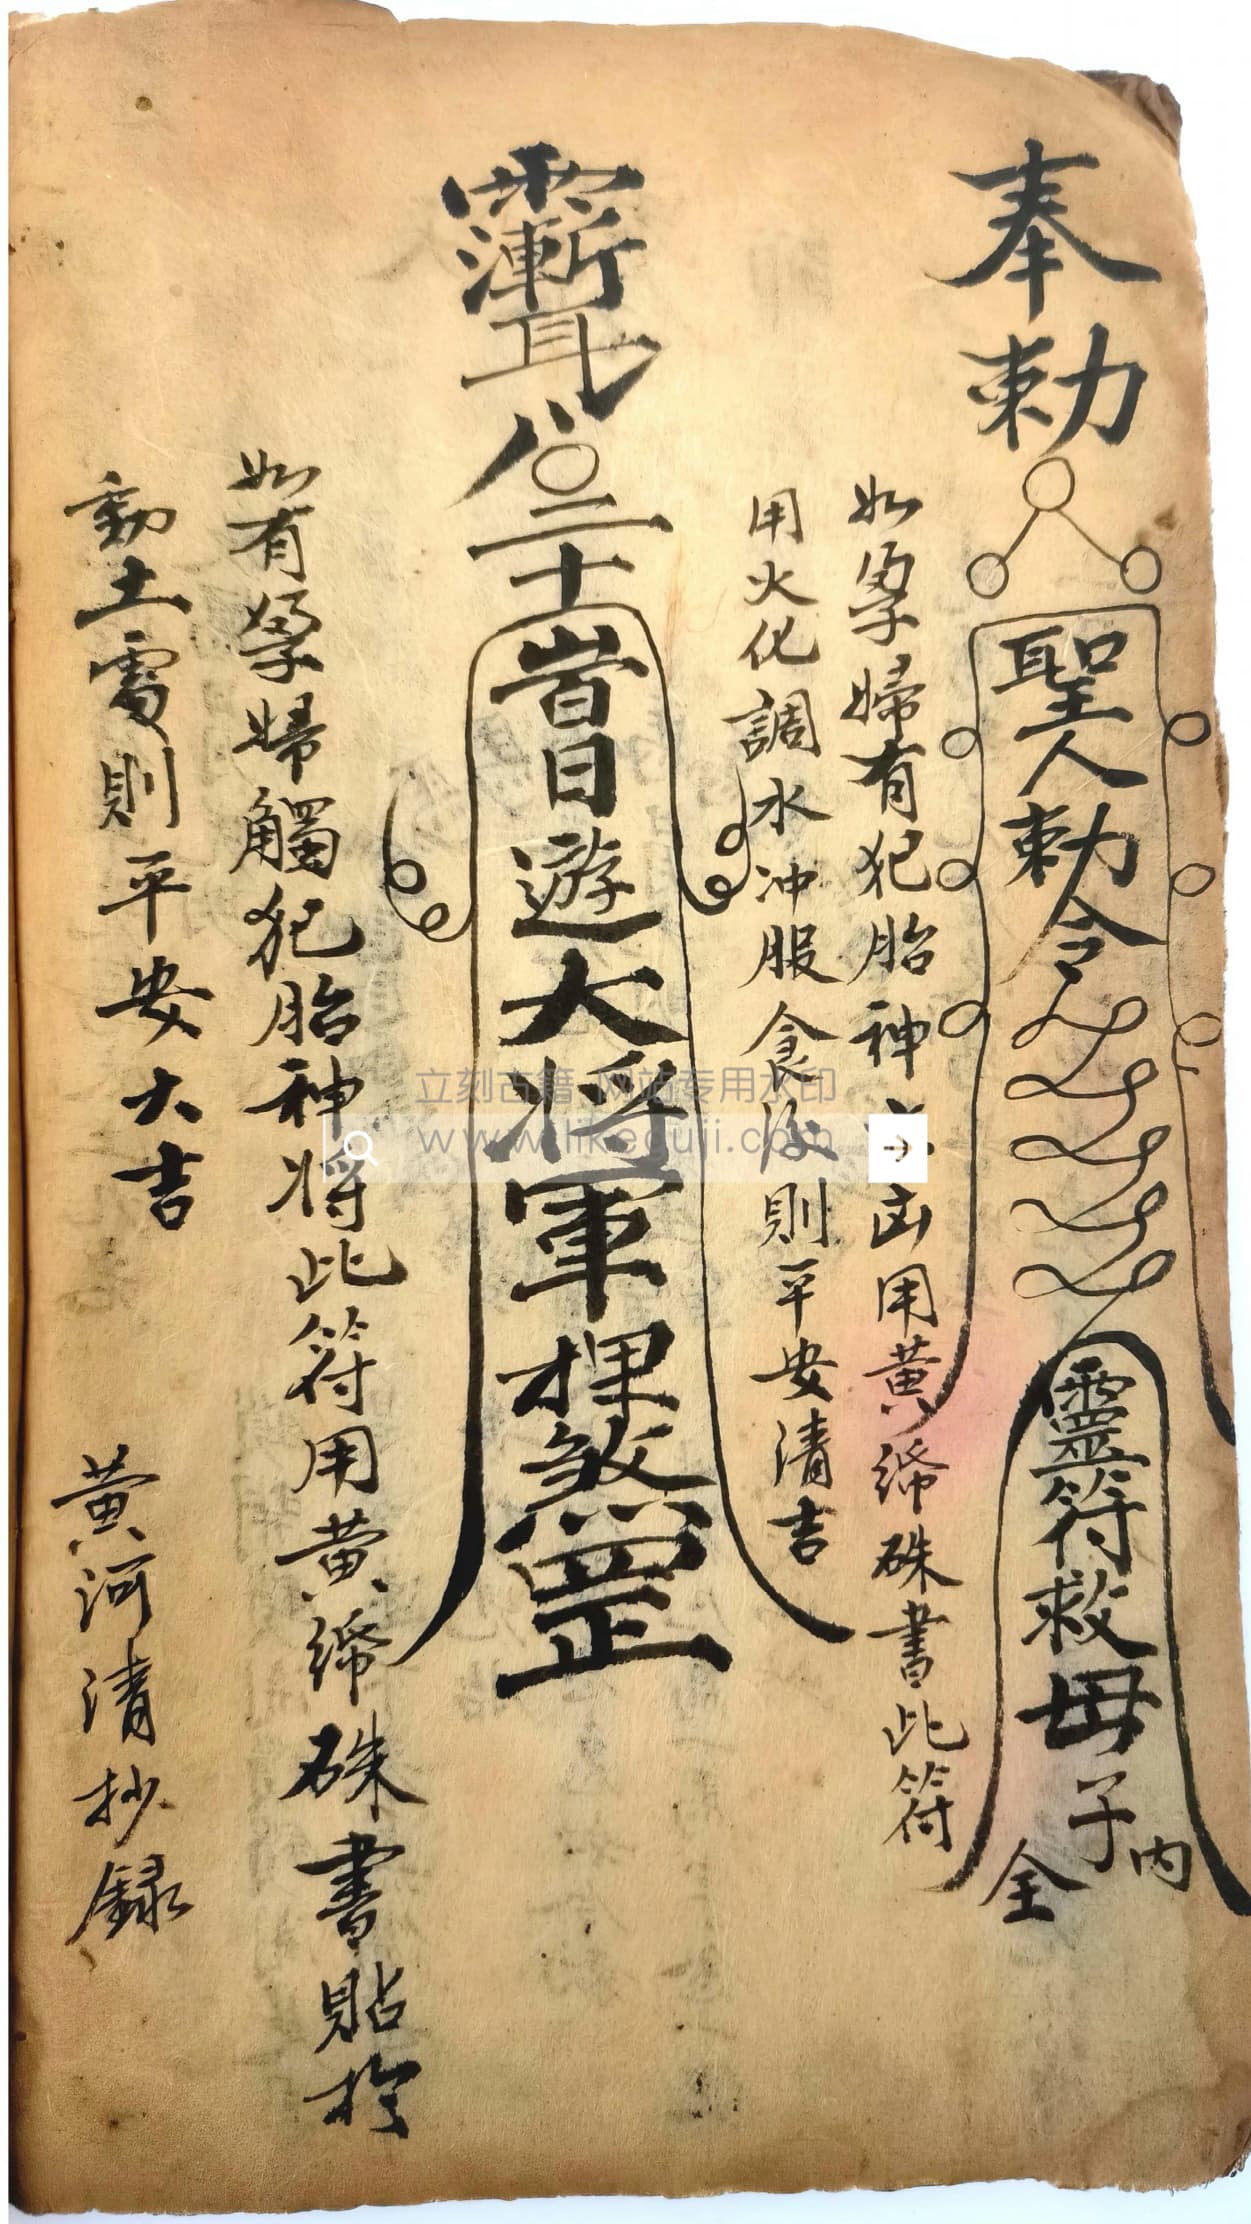 奉勅
聖人勅令
靈符救母子
内
全
如孕婦有犯胎神
凶用黄
硃書此符
用火化調水冲服食後則平安清吉
八
二十
昔日遊大將軍
煞罡
如有孕婦觸犯胎神将此符用黄
硃書貼
動土處則平安大吉
黄河清抄録
立刻古籍 网站专用水印
www.likeguji.com